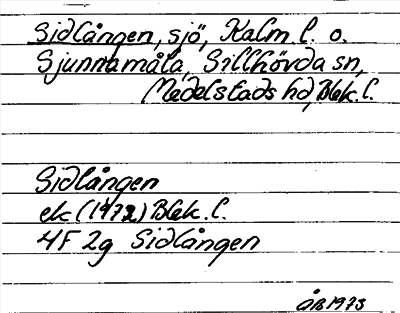 Sidlången, sjö, Kalm. l. o.
Sjunnamåla, Sillhövda sn,
Medelstads hd, Blek. l.
Sidlången
ek (1972) Blek. l.
4F 2g Sidlången
ÅB 1973